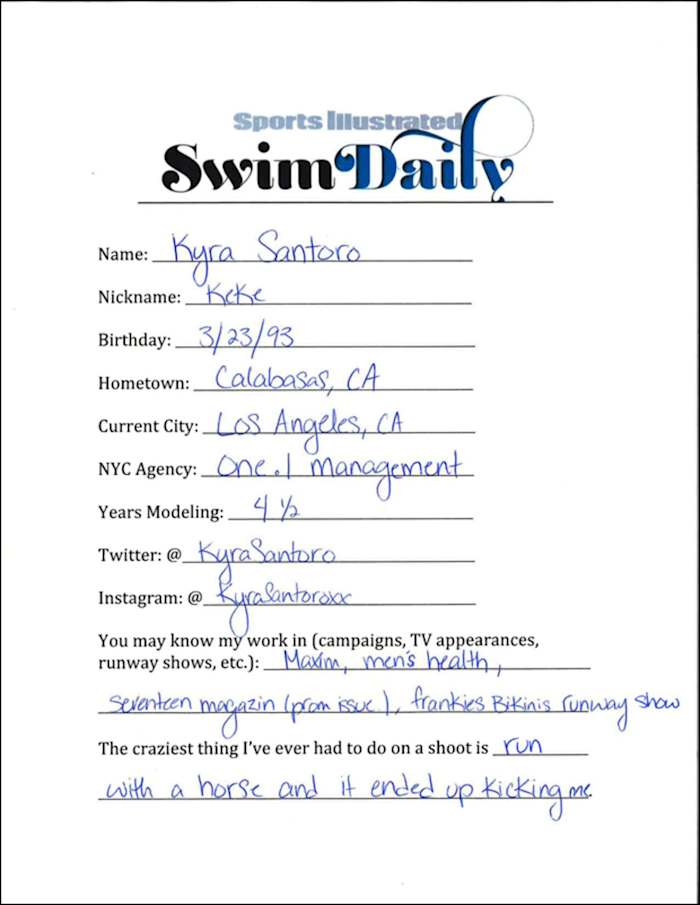 Sports Illustrated
Swim Daily
Name: Kyra Santoro
Nickname: KeKe
Birthday: 3/23/93
Hometown: Calabasas, CA
Current City: Los Angeles, CA
NYC Agency: One.1 management
Years Modeling: 4 ½
Twitter: @ KyraSantoro
Instagram: @ KyraSantoroxx
You may know my work in (campaigns, TV appearances,
runway shows, etc.): Maxim, men's health,
Seventeen magazin (prom issue), frankies Bikinis runway show
The craziest thing I've ever had to do on a shoot is run
with a horse and it ended up kicking me.